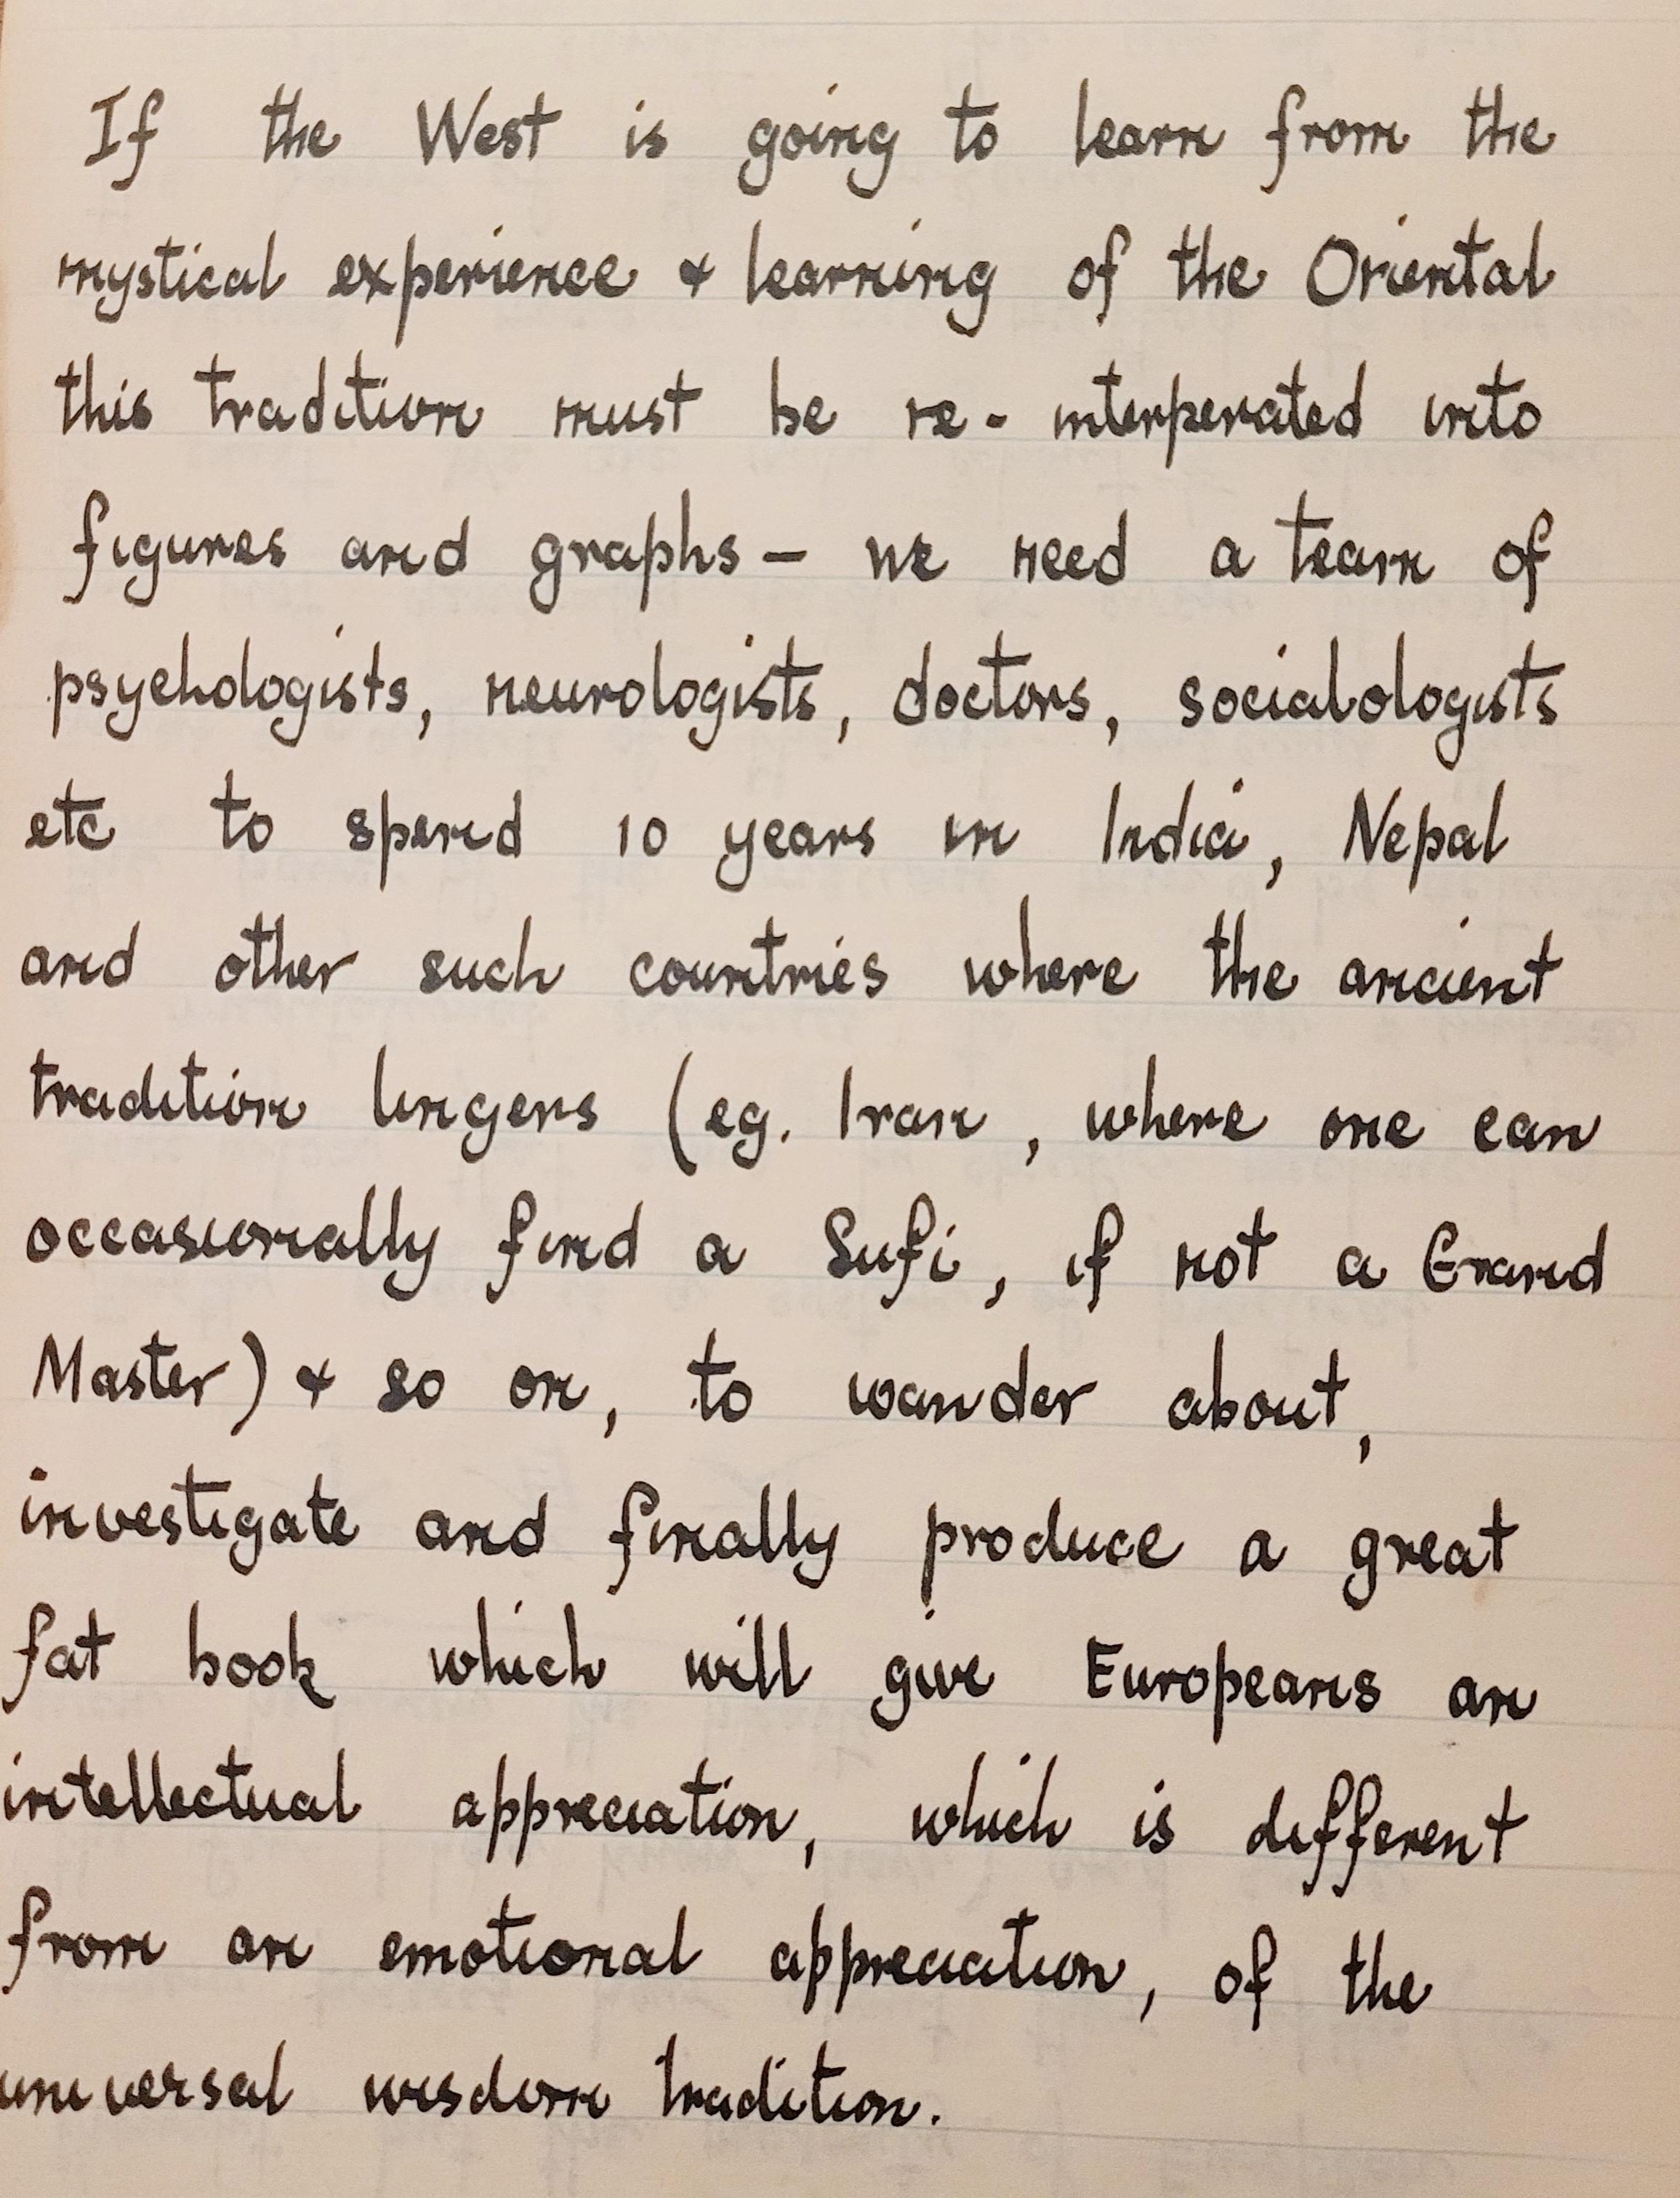 If the West is going to learn from the
mystical experience & learning of the Oriental
this tradition must be re-interperated into
figures and graphs — we need a team of
psychologists, neurologists, doctors, socialologists
etc to spend 10 years in India, Nepal
and other such countries where the ancient
tradition lingers (eg. Iran, where one can
occasionally find a Sufi, if not a Grand
Master) & so on, to wander about,
investigate and finally produce a great
fat book which will give Europeans an
intellectual appreciation, which is different
from an emotional appreciation, of the
universal wisdom tradition.